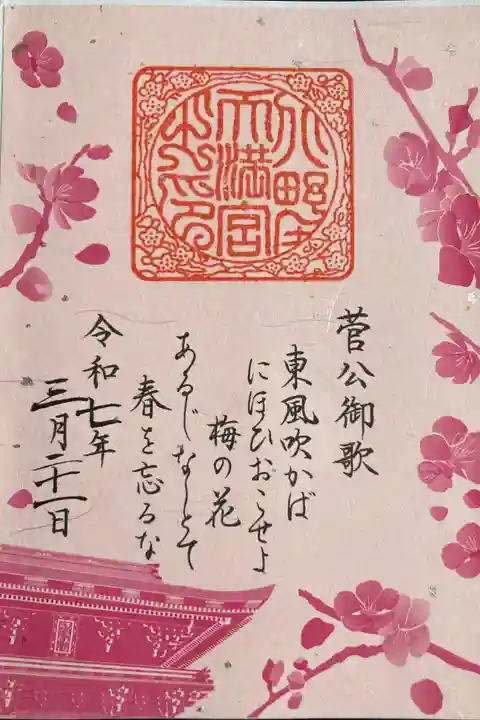 天満宮
菅公御歌
東風吹かば
にほひおこせよ
梅の花
あるじなしとて
春を忘るな
令和七年
三月二十一日